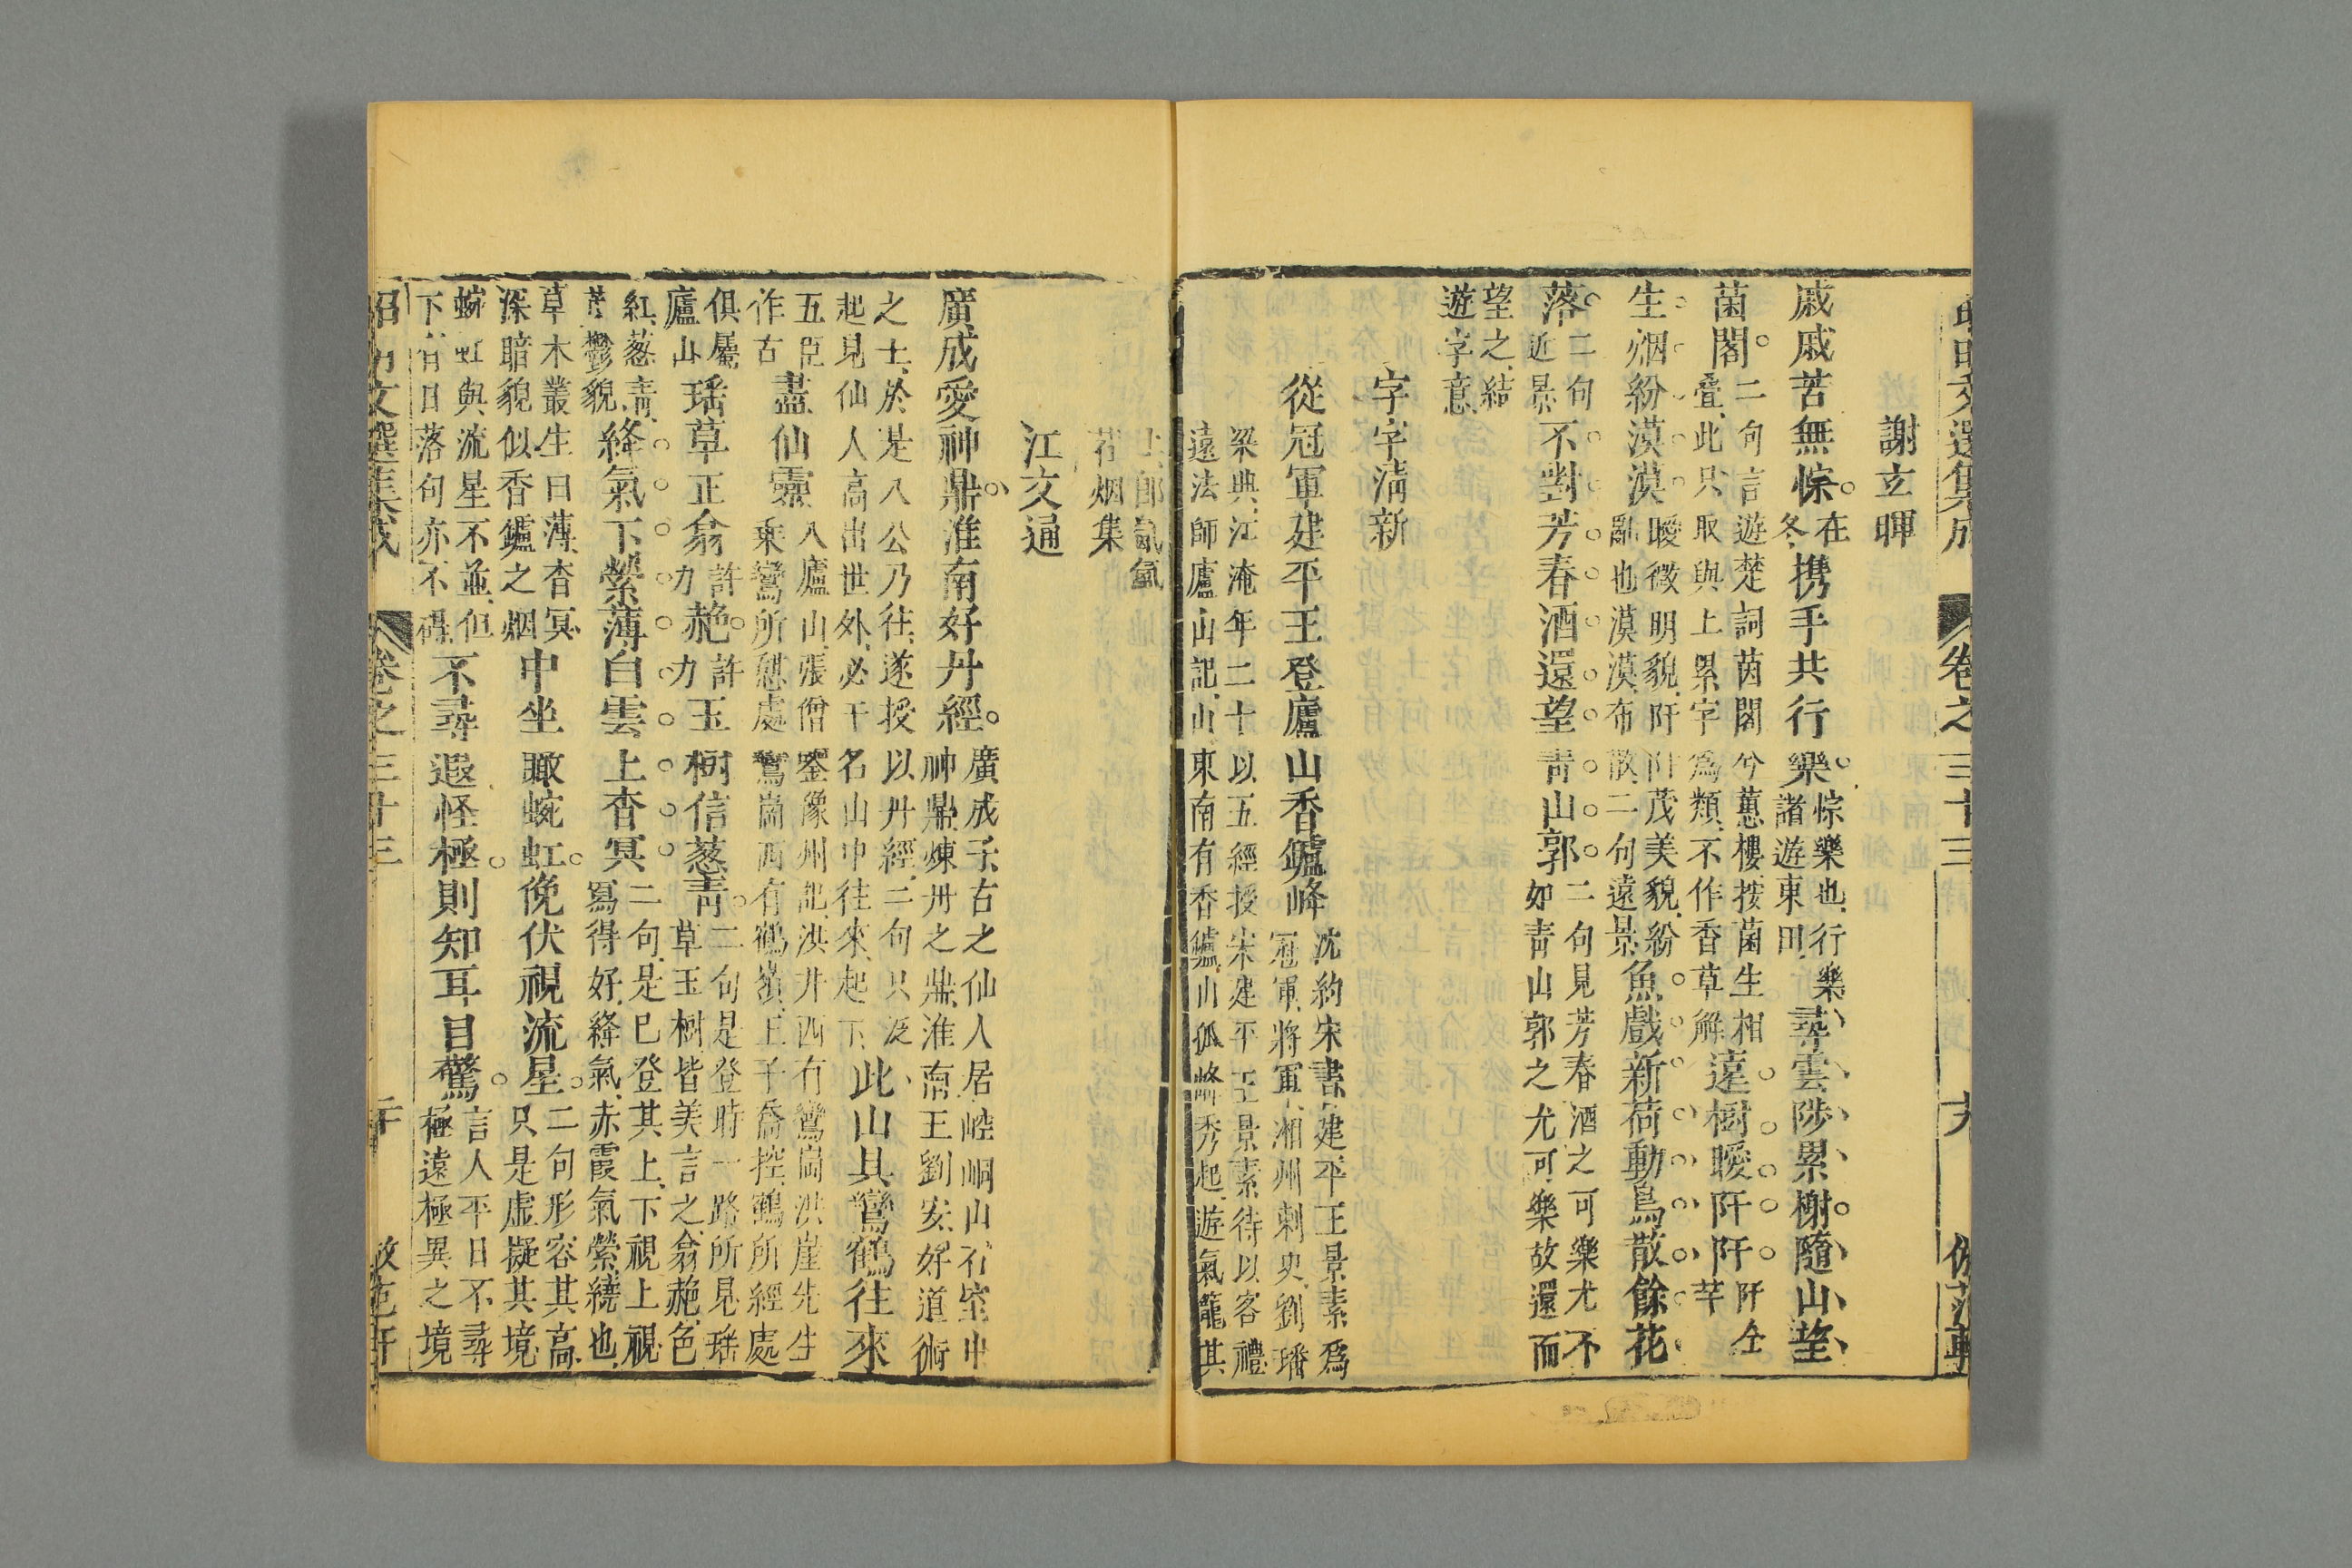 昭明文選集成 卷之三十三 九 倣范軒
謝玄暉
戚戚苦無悰。在冬携手共行樂。悰樂也行樂諸遊東田尋雲陟累榭。隨山望
菌閣。二句言遊楚詞茵閣兮蕙樓按菌生相叠此只取與上累字爲類不作香草解遠樹曖阡阡阡仝芊
生烟紛漠漠曖微明貌阡阡茂美貌紛亂也漠漠布散二句遠景魚戲新荷動鳥散餘花
落。二句近景不對芳春酒還望靑山郭二句見芳春酒之可樂尤不如靑山郭之尤可樂故還而
望之結遊字意
字字淸新
從冠軍建平王登廬山香鑪峰沈約宋書建平王景素爲冠軍將軍湘州刺史劉璠
梁典江淹年二十以五經授宋建平王景素待以客禮遠法師廬山記山東南有香鑪山孤峰秀起遊氣籠其
上郎氤氳若烟集
江文通
廣成愛神鼎。淮南好丹經。廣成子古之仙人居崆峒山石室中神鼎煉丹之鼎淮南王劉安好道術
之士於是八公乃往遂授以丹經二句只泛起見仙人高出世外必于名山中往來起下此山具鸞鶴往來
五臣作古盡仙靈八廬山張僧鑒豫州記洪井西有鸞岡洪崖先生乘鸞所憩處鸞岡西有鶴嶺王子喬控鶴所經處
俱屬廬山瑤草正翕許力赩。許力玉樹信葱靑。二句是登時一路所見瑤草玉樹皆美言之翕赩色
紅葱靑茂鬱貌絳氣下縈薄白雲上杳冥二句是巳登其上下視上視寫得好絳氣赤霞氣縈繞也
草木叢生曰薄杳冥深暗貌似香鑪之烟中坐瞰蜿虹。俛伏視流星。二句形容其高只是虛擬其境
蜿虹與流星不並但下有日落句亦不礙不尋遐怪極。則知耳目驚。言人平日不尋極遠極異之境
昭明文選集成 卷之三十三 二十 倣范軒